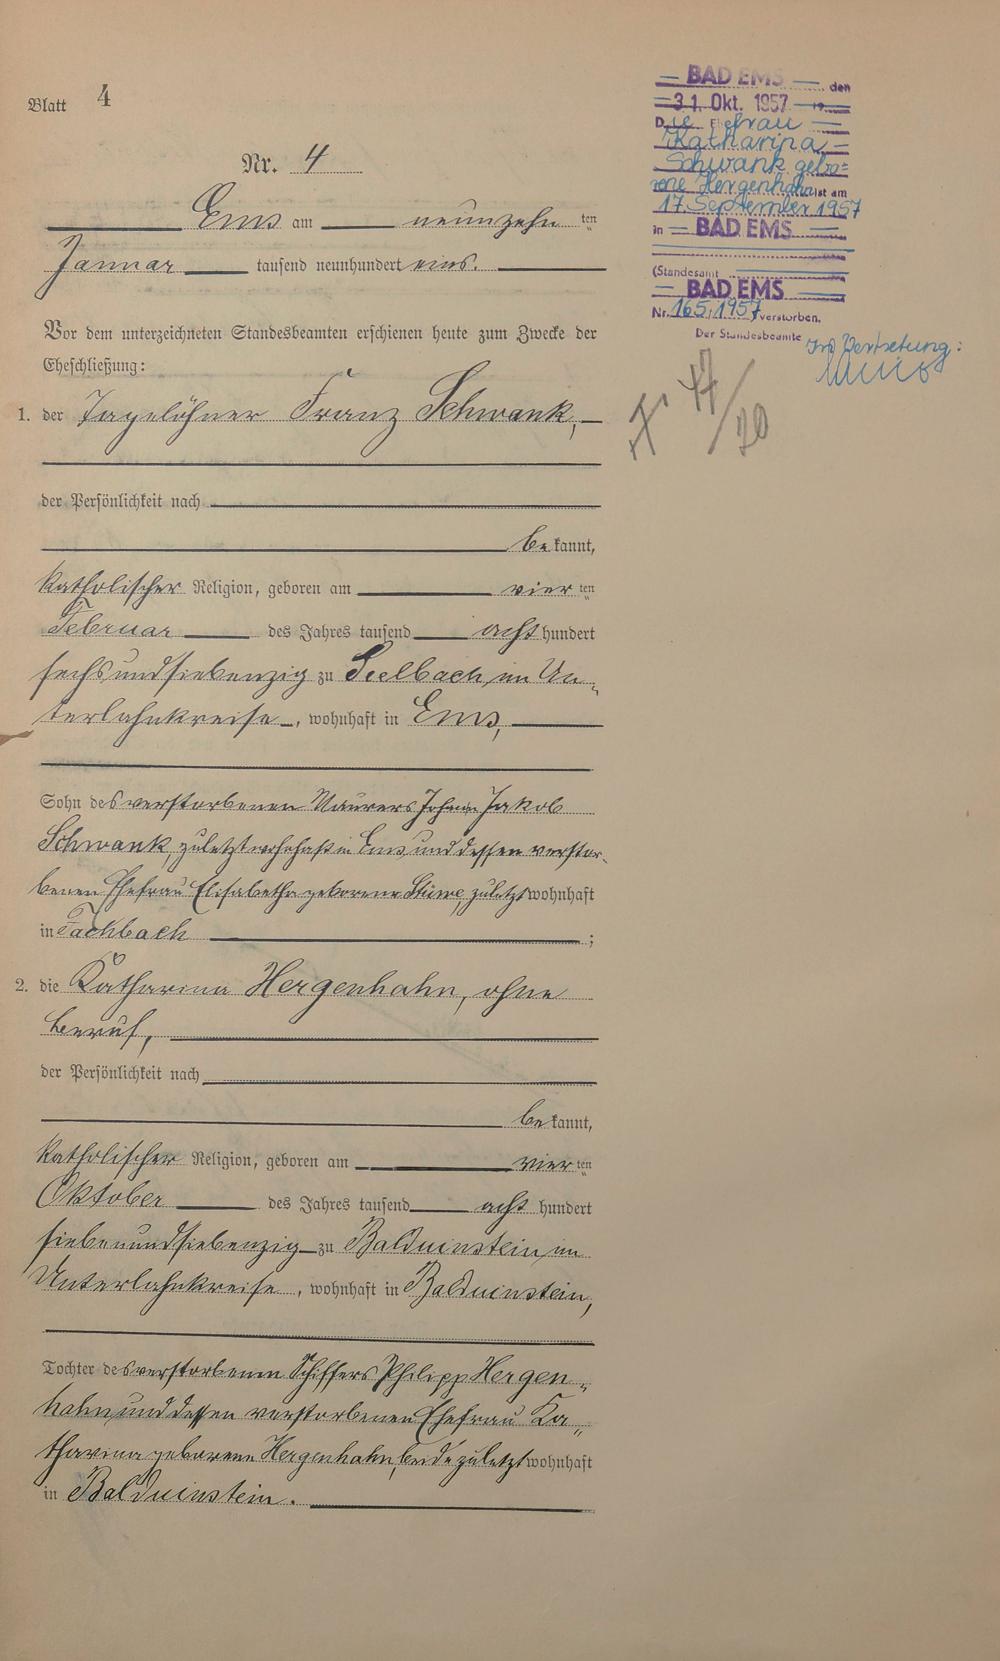 Blatt 4
Nr. 4
Ems am neunzehn ten
Januar tausend neunhundert eins.
Vor dem unterzeichneten Standesbeamten erschienen heute zum Zwecke der
Eheschließung:
1. der Tagelöhner Franz Schwank,
der Persönlichkeit nach
be kannt,
katholischer Religion, geboren am vier ten
Februar des Jahres tausend acht hundert
sechsundsiebenzig zu Seelbach im Un-
terlahnkreise, wohnhaft in Ems,
Sohn des verstorbenen Maurers Johann Jakob
Schwank, zuletzt wohnhaft in Ems und dessen verstor-
benen Ehefrau Elisabetha geborene zuletzt wohnhaft
in Fachbach ;
2. die Katharina Hergenhahn, ohne
Beruf,
der Persönlichkeit nach
be kannt,
katholischer Religion, geboren am vier ten
Oktober des Jahres tausend acht hundert
siebenundsiebenzig zu Balduinstein im
Unterlahnkreise, wohnhaft in Balduinstein,
Tochter des verstorbenen Schiffers Philipp Hergen-
hahn und dessen verstorbenen Ehefrau Ka-
tharina geborene Hergenhahn, beide zuletzt wohnhaft
in Balduinstein.
BAD EMS den
31. Okt. 1957 19
Die Ehefrau
Katharina
Schwank gebo=
rene Hergenhahn ist am
17. September 1957
in BAD EMS
(Standesamt
BAD EMS
Nr. 165/1957 verstorben.
Der Standesbeamte
Vertretung: